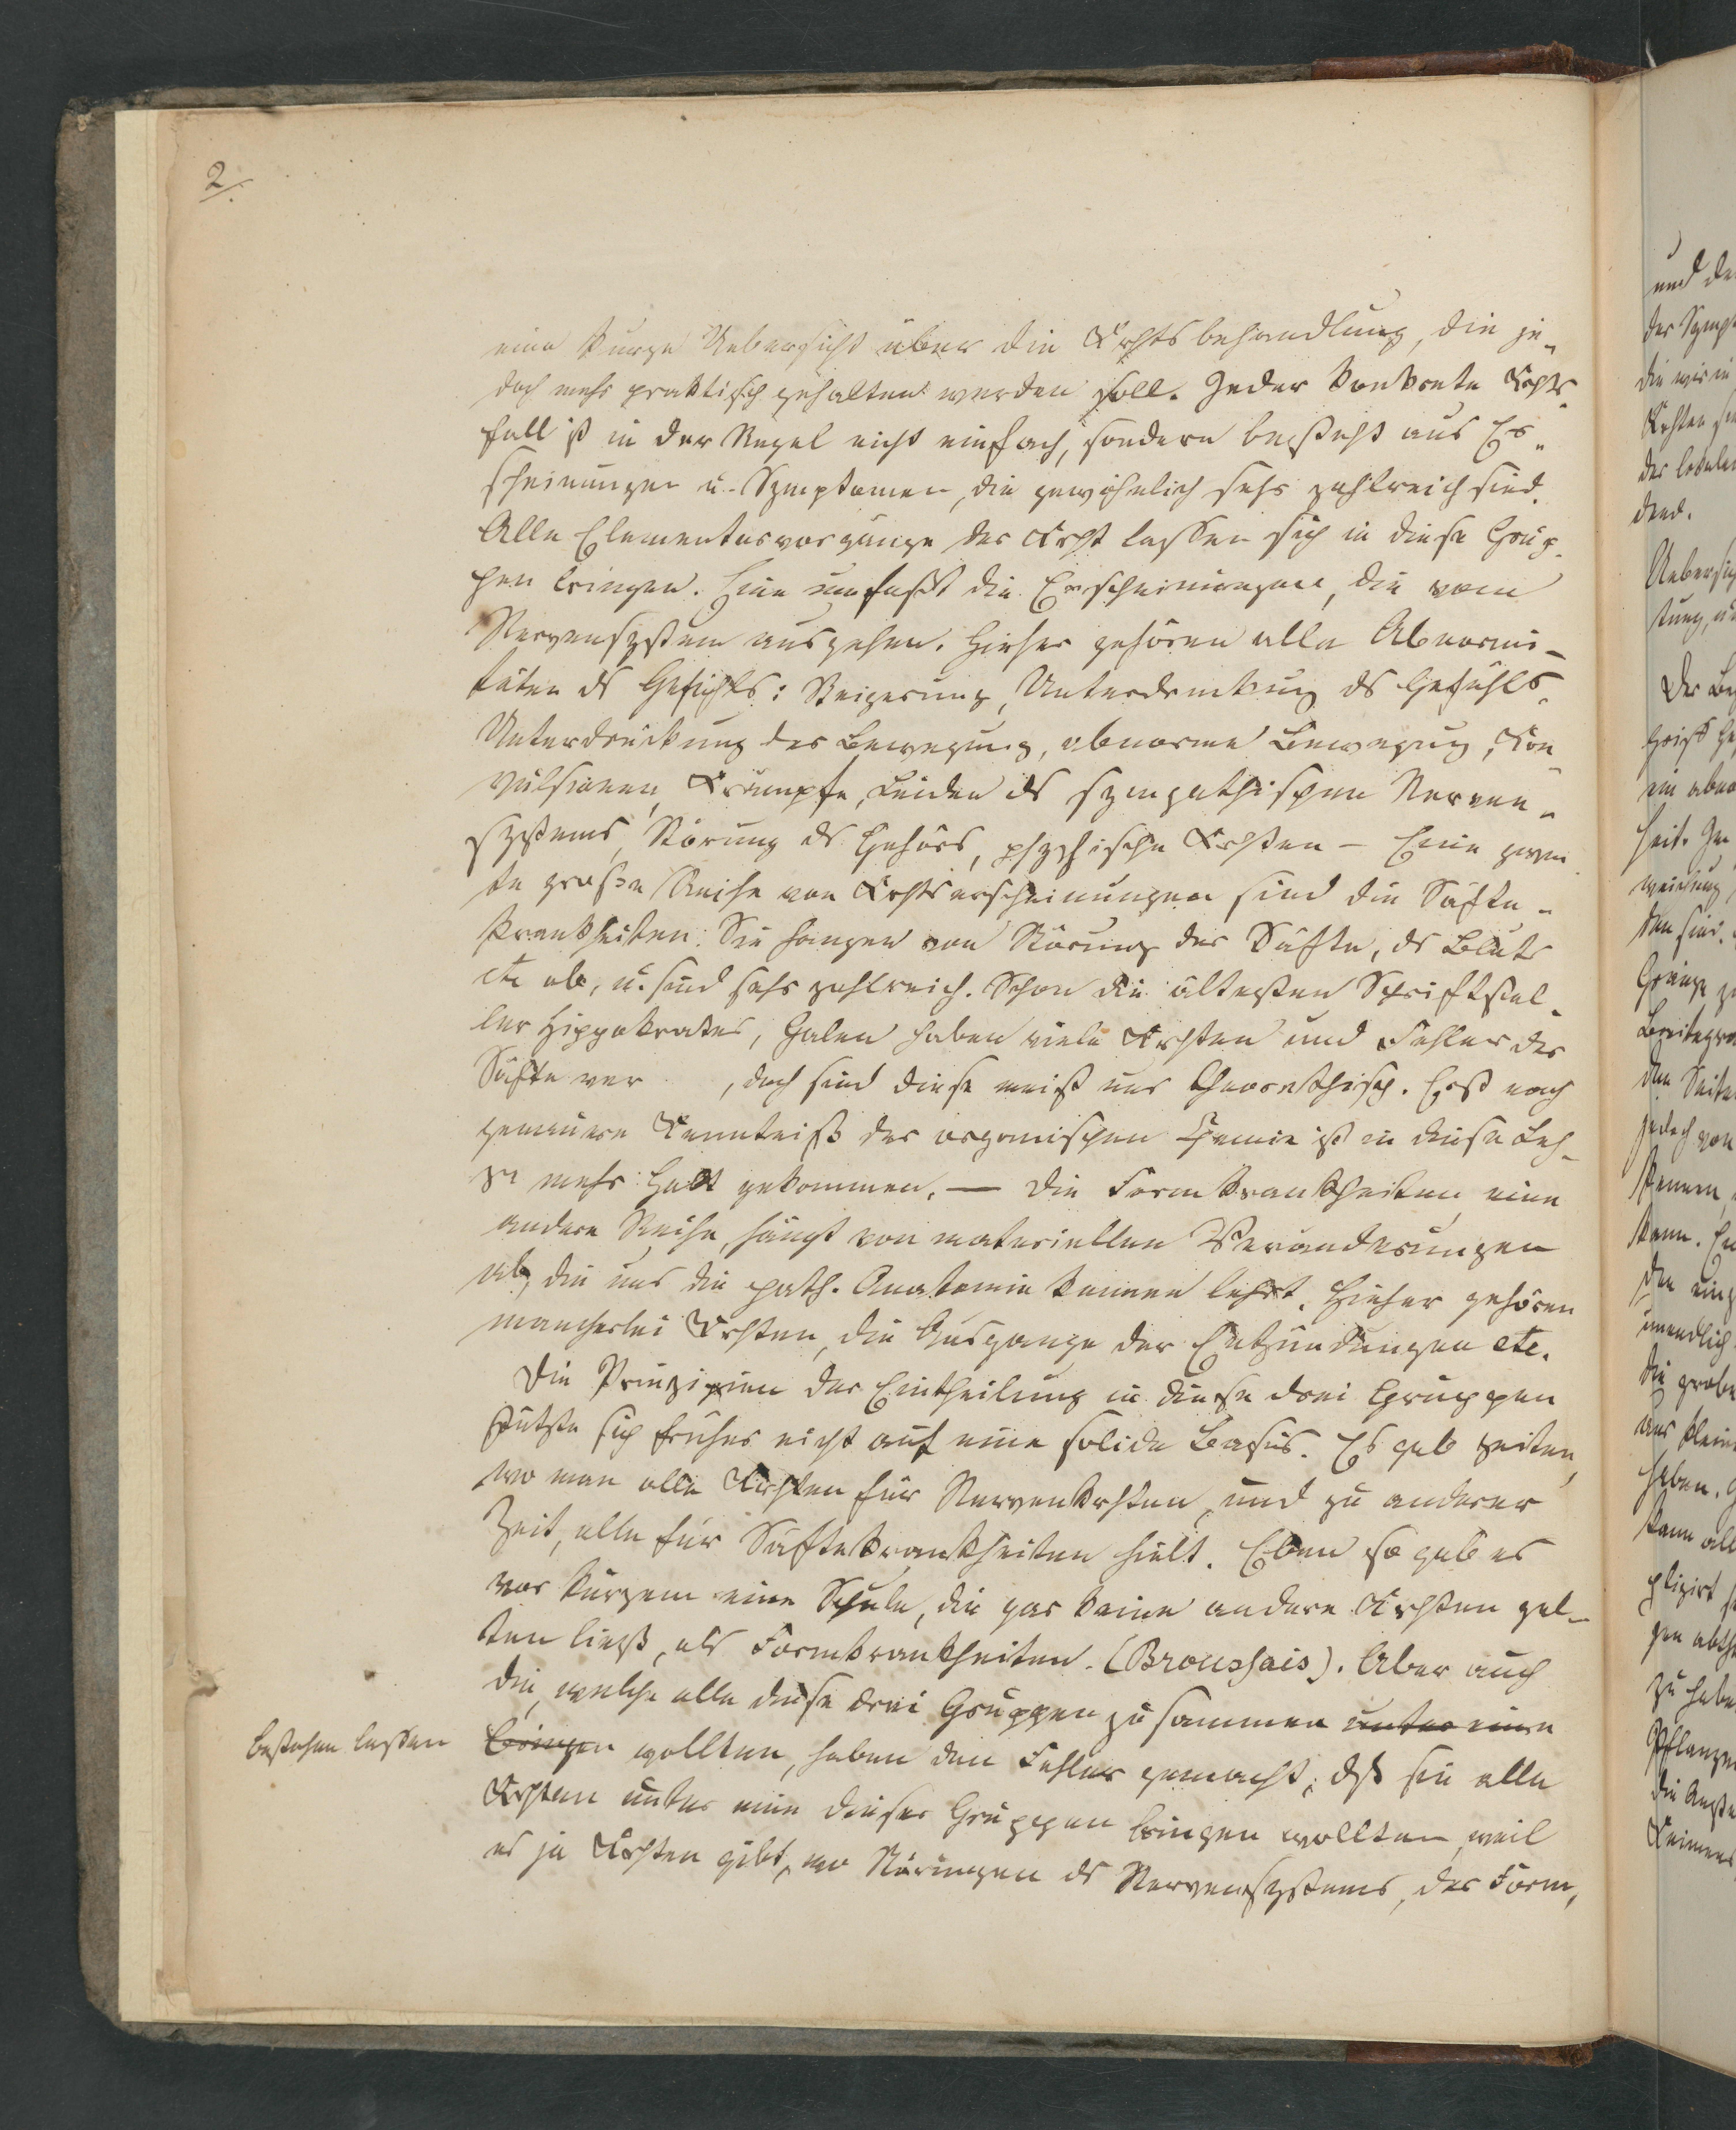 2/.
eine kurze Uebersicht über die Krhtsbehandlung, die je-
doch mehr praktisch gehalten werden soll. Jeder konkrete Krhts-
fall ist in der Regel nicht einfach, sondern besteht aus Er-
scheinungen u. Symptomen, die gewöhnlich sehr zahlreich sind.
Alle Elementarvorgänge der Krht lassen sich in diese Grup-
pen bringen. Eine umfaßt die Erscheinungen, die vom
Nervensystem ausgehen. Hieher gehören alle Abnormi-
täten ds Gefühls: Steigerung, Unterdrückung ds Gefühls,
Unterdrückung der Bewegung, abnorme Bewegung, Kon-
vulsionen, Krämpfe, Leiden ds sympathischen Nerven-
systems, Störung ds Gehörs, psychische Krhten – Eine zwei-
te große Reihe von Krhtserscheinungen sind die Säfte-
krankheiten. Sie hangen von Störung der Säfte, ds Bluts
etc ab, u. sind sehr zahlreich. Schon die ältesten Schriftstel-
ler Hippokrates, Galen haben viele Krhten und Fehler der
Säfte ver , doch sind diese meist nur theorethisch. Erst nach
genauere Kenntniß der organischen Chemie ist in diese Leh-
re mehr Halt gekommen. — Die Formkrankheiten, eine
andere Reihe, hängt von materiellen Veränderungen
ab, die uns die path. Anatomie kennen lehrt. Hieher gehören
mancherlei Krhten, die Ausgange der Entzündungen etc.
Die Prinzipien der Eintheilung in diese drei Gruppen
stützte sich früher nicht auf eine solide Basis. Es gab Zeiten,
wo man alle Krhten für Nervenkrhten, und zu anderer
Zeit, alle für Säftekrankheiten hielt. Eben so gab es
vor kurzem eine Schule, die gar keine andere Krhten gel-
ten ließ, als Formkrankheiten. (Broussais). Aber auch
die, welche alle diese drei Gruppen zusammen unter eine
bestehen lassen bringen wollten, haben den Fehler gemacht, dß sie alle
Krhten unter eine dieser Gruppen bringen wollten, weil
es ja Krhten gibt, wo Störungen ds Nervensystems, der Form,